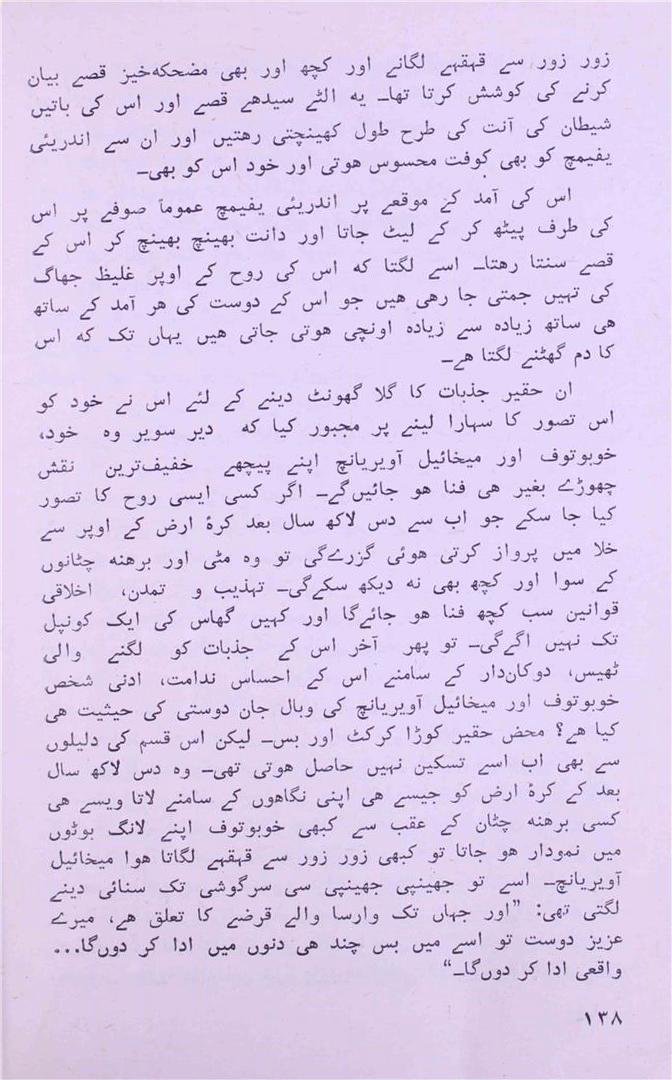 زور زور سے قہقہے لگانے اور کچھ اور بھی مضحکہ‌خیز قصے بیان
کرنے کی کوشش کرتا تھا۔ یہ الٹے سیدھے قصے اور اس کی باتیں
شیطان کی آنت کی طرح طول کھینچتی رہتیں اور ان سے اندریئی
یفیمچ کو بھی کوفت محسوس ہوتی اور خود اس کو بھی۔
اس کی آمد کے موقعے پر اندریئی یفیمچ عموماً صوفے پر اس
کی طرف پیٹھ کر کے لیٹ جاتا اور دانت بھینچ بھینچ کر اس کے
قصے سنتا رہتا۔ اسے لگتا کہ اس کی روح کے اوپر غلیظ جھاگ
کی تہیں جمتی جا رہی ہیں جو اس کے دوست کی ہر آمد کے ساتھ
ہی ساتھ زیادہ سے زیادہ اونچی ہوتی جاتی ہیں یہاں تک کہ اس
کا دم گھٹنے لگتا ہے۔
ان حقیر جذبات کا گلا گھونٹ دینے کے لئے اس نے خود کو
اس تصور کا سہارا لینے پر مجبور کیا کہ دیر سویر وہ خود،
خوبوتوف اور میخائیل آویریانچ اپنے پیچھے خفیف‌ترین نقش
چھوڑے بغیر ہی فنا ہو جائیں‌گے۔ اگر کسی ایسی روح کا تصور
کیا جا سکے جو اب سے دس لاکھ سال بعد کرۂ ارض کے اوپر سے
خلا میں پرواز کرتی ہوئی گزرے‌گی تو وہ مٹی اور برہنہ چٹانوں
کے سوا اور کچھ بھی نہ دیکھ سکے‌گی۔ تہذیب و تمدن، اخلاقی
قوانین سب کچھ فنا ہو جائے‌گا اور کہیں گھاس کی ایک کونپل
تک نہیں اگے‌گی۔ تو پھر آخر اس کے جذبات کو لگنے والی
ٹھیس، دوکان‌دار کے سامنے اس کے احساس ندامت، ادنی شخص
خوبوتوف اور میخائیل آویریانچ کی وبال جان دوستی کی حیثیت ہی
کیا ہے؟ محض حقیر کوڑا کرکٹ اور بس۔ لیکن اس قسم کی دلیلوں
سے بھی اب اسے تسکین نہیں حاصل ہوتی تھی۔ وہ دس لاکھ سال
بعد کے کرۂ ارض کو جیسے ہی اپنی نگاہوں کے سامنے لاتا ویسے ہی
کسی برہنہ چٹان کے عقب سے کبھی خوبوتوف اپنے لانگ بوٹوں
میں نمودار ہو جاتا تو کبھی زور زور سے قہقہے لگاتا ہوا میخائیل
آویریانچ۔ اسے تو جھینپی جھینپی سی سرگوشی تک سنائی دینے
لگتی تھی: ”اور جہاں تک وارسا والے قرضے کا تعلق ہے، میرے
عزیز دوست تو اسے میں بس چند ہی دنوں میں ادا کر دوں‌گا...
واقعی ادا کر دوں‌گا۔“
۱۳۸